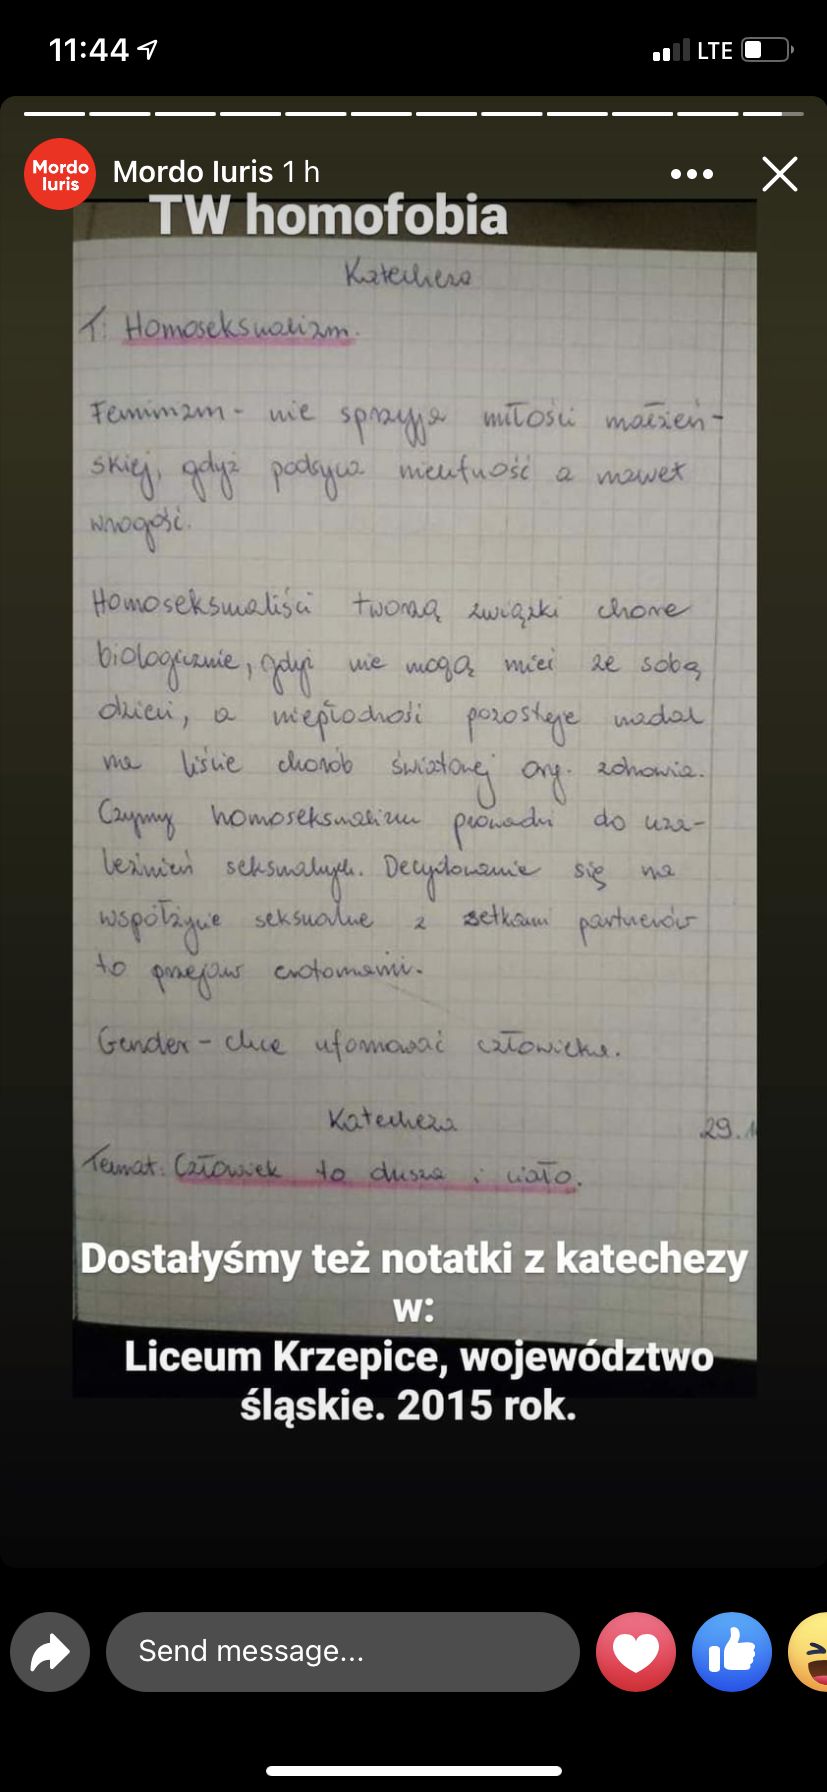 11:44
LTE
Mordo Iuris
Mordo Iuris 1 h
TW homofobia
Katecheza
T: Homoseksualizm.
Feminizm - nie sprzyja miłości małżeń-
skiej, gdyż podsyca nieufność a nawet
wrogość.
Homoseksualiści tworzą związki chore
biologicznie, gdyż nie mogą mieć ze sobą
dzieci, a niepłodność pozostaje nadal
na liście chorób światowej org. zdrowia.
Czynny homoseksualizm prowadzi do uza-
leżnień seksualnych. Decydowanie się na
współżycie seksualne z setkami partnerów
to przejaw erotomanii.
Gender - chce uformować człowieka.
Katecheza
29.
Temat: Człowiek to dusza i ciało.
Dostałyśmy też notatki z katechezy
w:
Liceum Krzepice, województwo
śląskie. 2015 rok.
Send message...